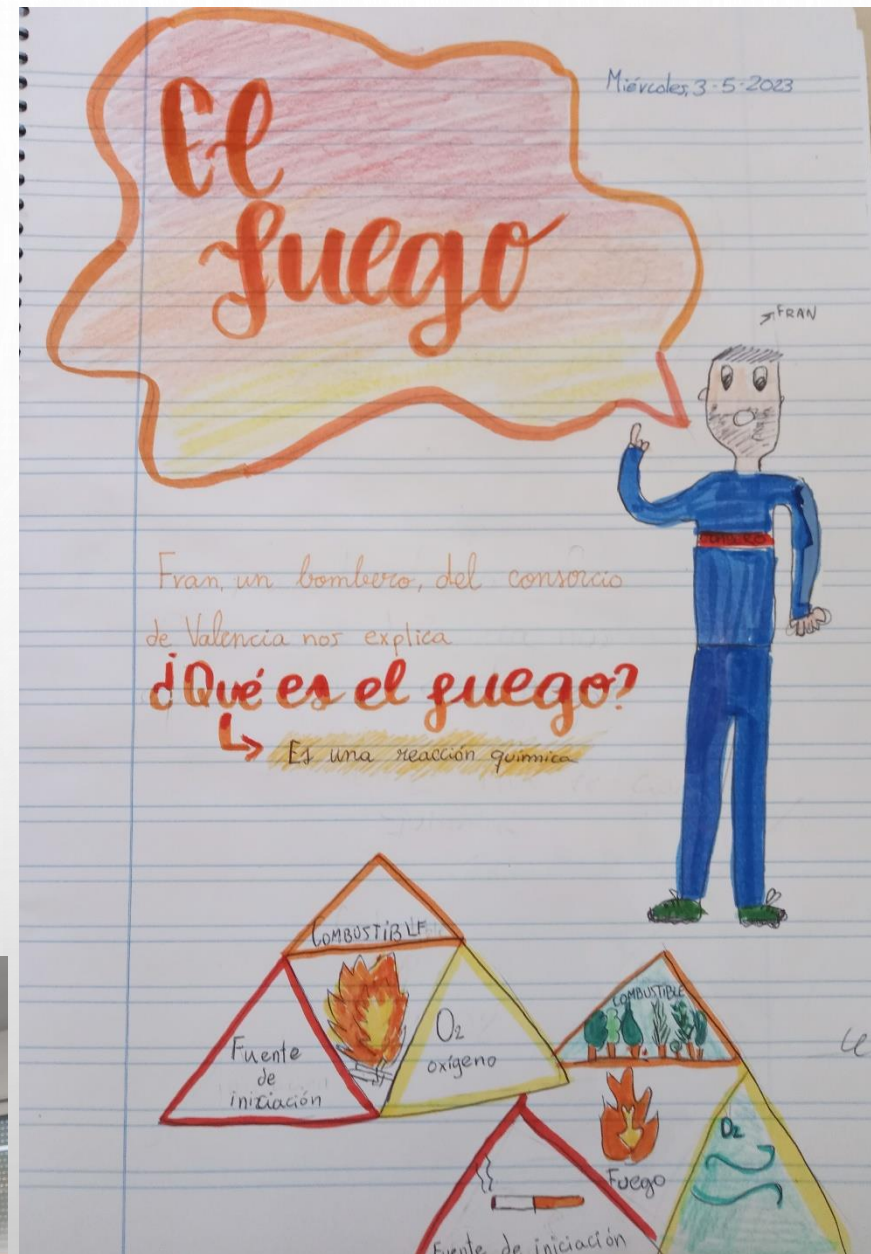 Miércoles, 3-5-2023
El
fuego
FRAN
Fran, un bombero, del consorcio
de Valencia nos explica
¿Qué es el fuego?
Es una reacción química
COMBUSTIBLE
Fuente
de
iniziación
O2
oxígeno
COMBUSTIBLE
O2
Fuego
Fuente de iniciación